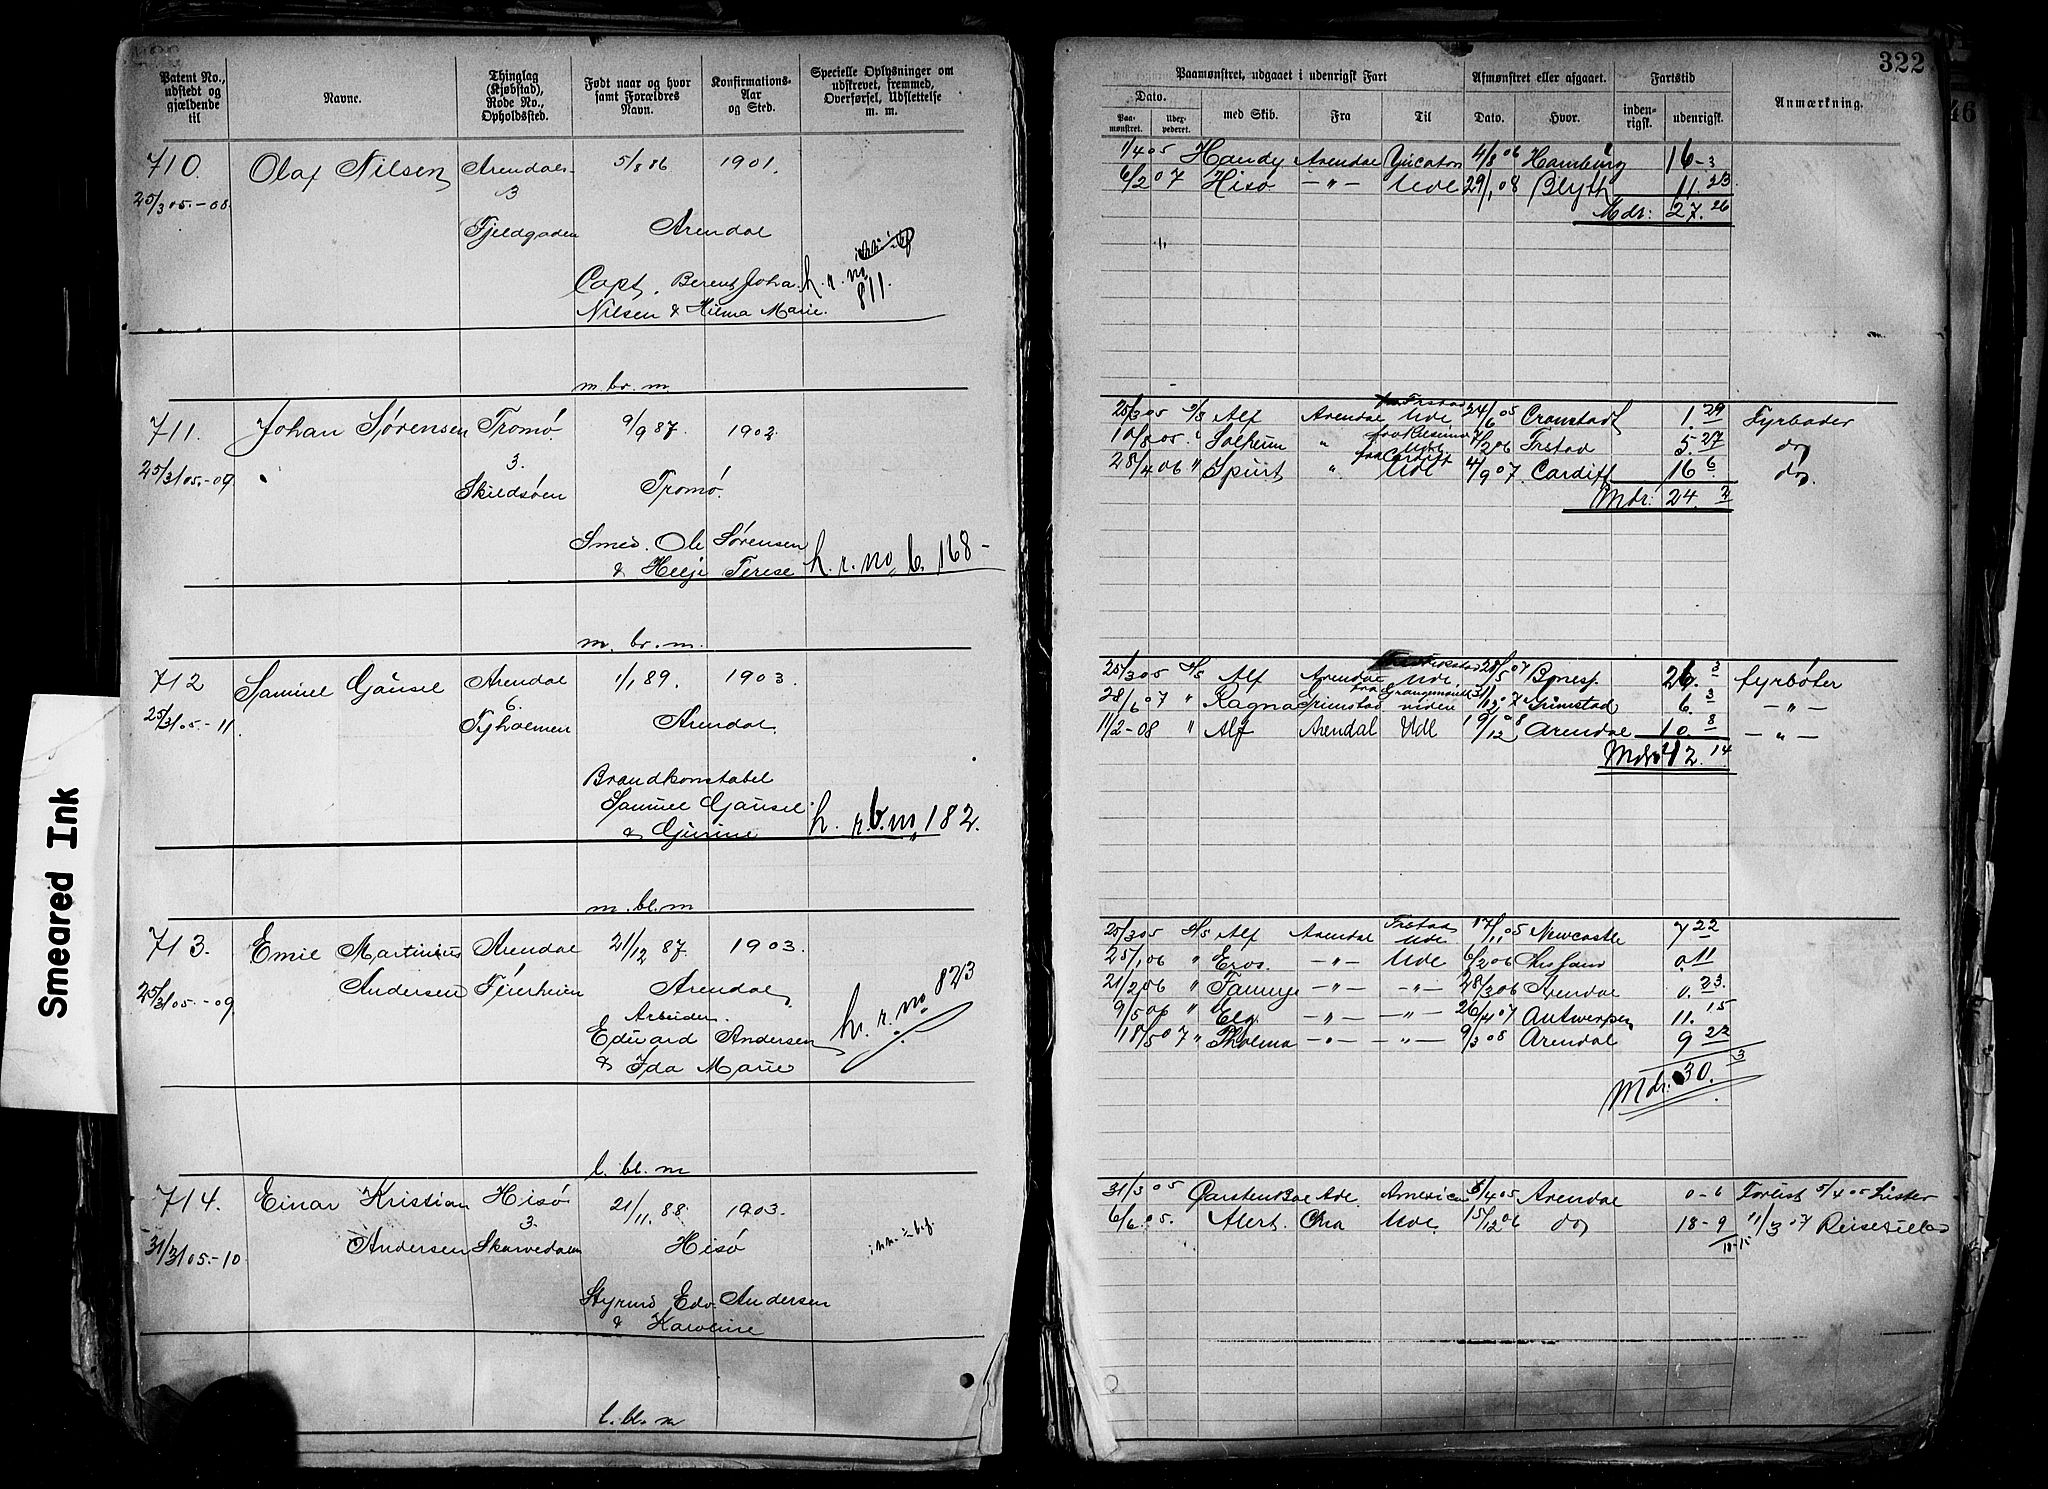 322
46
Smeared Ink
Patent No., udstedt og gjældende til
Navne.
Thinglag (Kjøbstad), Rode No., Opholdssted.
Født naar og hvor samt Forældres Navn.
Konfirmations-Aar og Sted.
Specielle Oplysninger om udskrevet, fremmed, Overførsel, Udslettelse m. m.
Paamønstret, udgaaet i udenrigsk Fart
Afmønstret eller afgaaet.
Fartstid
Anmærkning.
Dato.
Paa-mønstret.
Udex-pederet.
med Skib.
Fra
Til
Dato.
Hvor.
inden-rigsk.
udenrigsk.
710. Olaf Nilsen Arendals 5/8 86 1901.
3
25/3 05.-08.
Fjeldgaden Arendal
Capt. Berent Joha. h. r. no 811.
Nilsen & Hilma Marie.
m. br. m.
1/4 05 Handy Arendal Yucatan 4/8 06 Hamburg 16-3
6/2 07 Hisø -"- Udl 29/1 08 Blyth 11. 23
Mdr: 27. 26
711. Johan Sørensen Tromø. 9/9 87. 1902.
3.
25/3 05.-09.
Skildsøen Tromø.
Smed. Ole Sørensen
& Helje Terese h. r. no b. 168-
m. br. m.
25/3 05 Alf Arendal Udl 24/6 05 Cronstadt 1. 29 Fyrbøder
10/8 05 Solheim " Udl 7/2 06 Frstad 5. 27 do
28/4 06 " Spurt " fra Cardiff Udl 4/9 07. Cardiff 16 6 do.
Mdr: 24. 2
712 Samuel Gausel Arendal 1/1 89. 1903.
6.
25/3 05.-11.
Tyholmen Arendal.
Brandkonstabel
Samuel Gausel
& Gurine h. r. b. no 182.
m. bl. m
25/3 05 Alf Arendal Udl 07 26. 3 fyrbøter
28/6 07 " Ragna Grimstad Grimstad 6. 3 -"-
11/2-08 " Alf Arendal Udl 19/12 08 Arendal 10. 8 -"-
Mdr 42. 14
713. Emil Martinius Arendal 21/12 87. 1903.
25/3 05.-09.
Andersen Arendal
Arbeider.
Eduard Andersen h. r. no 823
& Ida Marie
l. bl. m
25/3 05 Alf Arendal Frstad Udl 17/11 05 Newcastle 7 22
25/1 06 " Eros. -"- Udl 6/2 06 0. 11
21/2 06 " -"- -"- 28/3 06 Arendal 0. 23.
9/5 06 " Elg -"- -"- 26/4 07 Antwerpen 11. 15
18/5 07 " Tholma -"- -"- 9/3 08 Arendal 9 22
Mdr: 30. 3
714. Einar Kristian Hisø 21/11. 88. 1903.
3.
31/3 05.-10
Andersen Hisø
Styrmd Edv. Andersen
& Karoline
l. bl. m
31/3 05 Carsten Boe Adl. American 5/4 05 Arendal 0-6 Forlist 5/4 05 Lister
6/6 05. Alert. Udl. 15/12 06 do 18-9
18-15